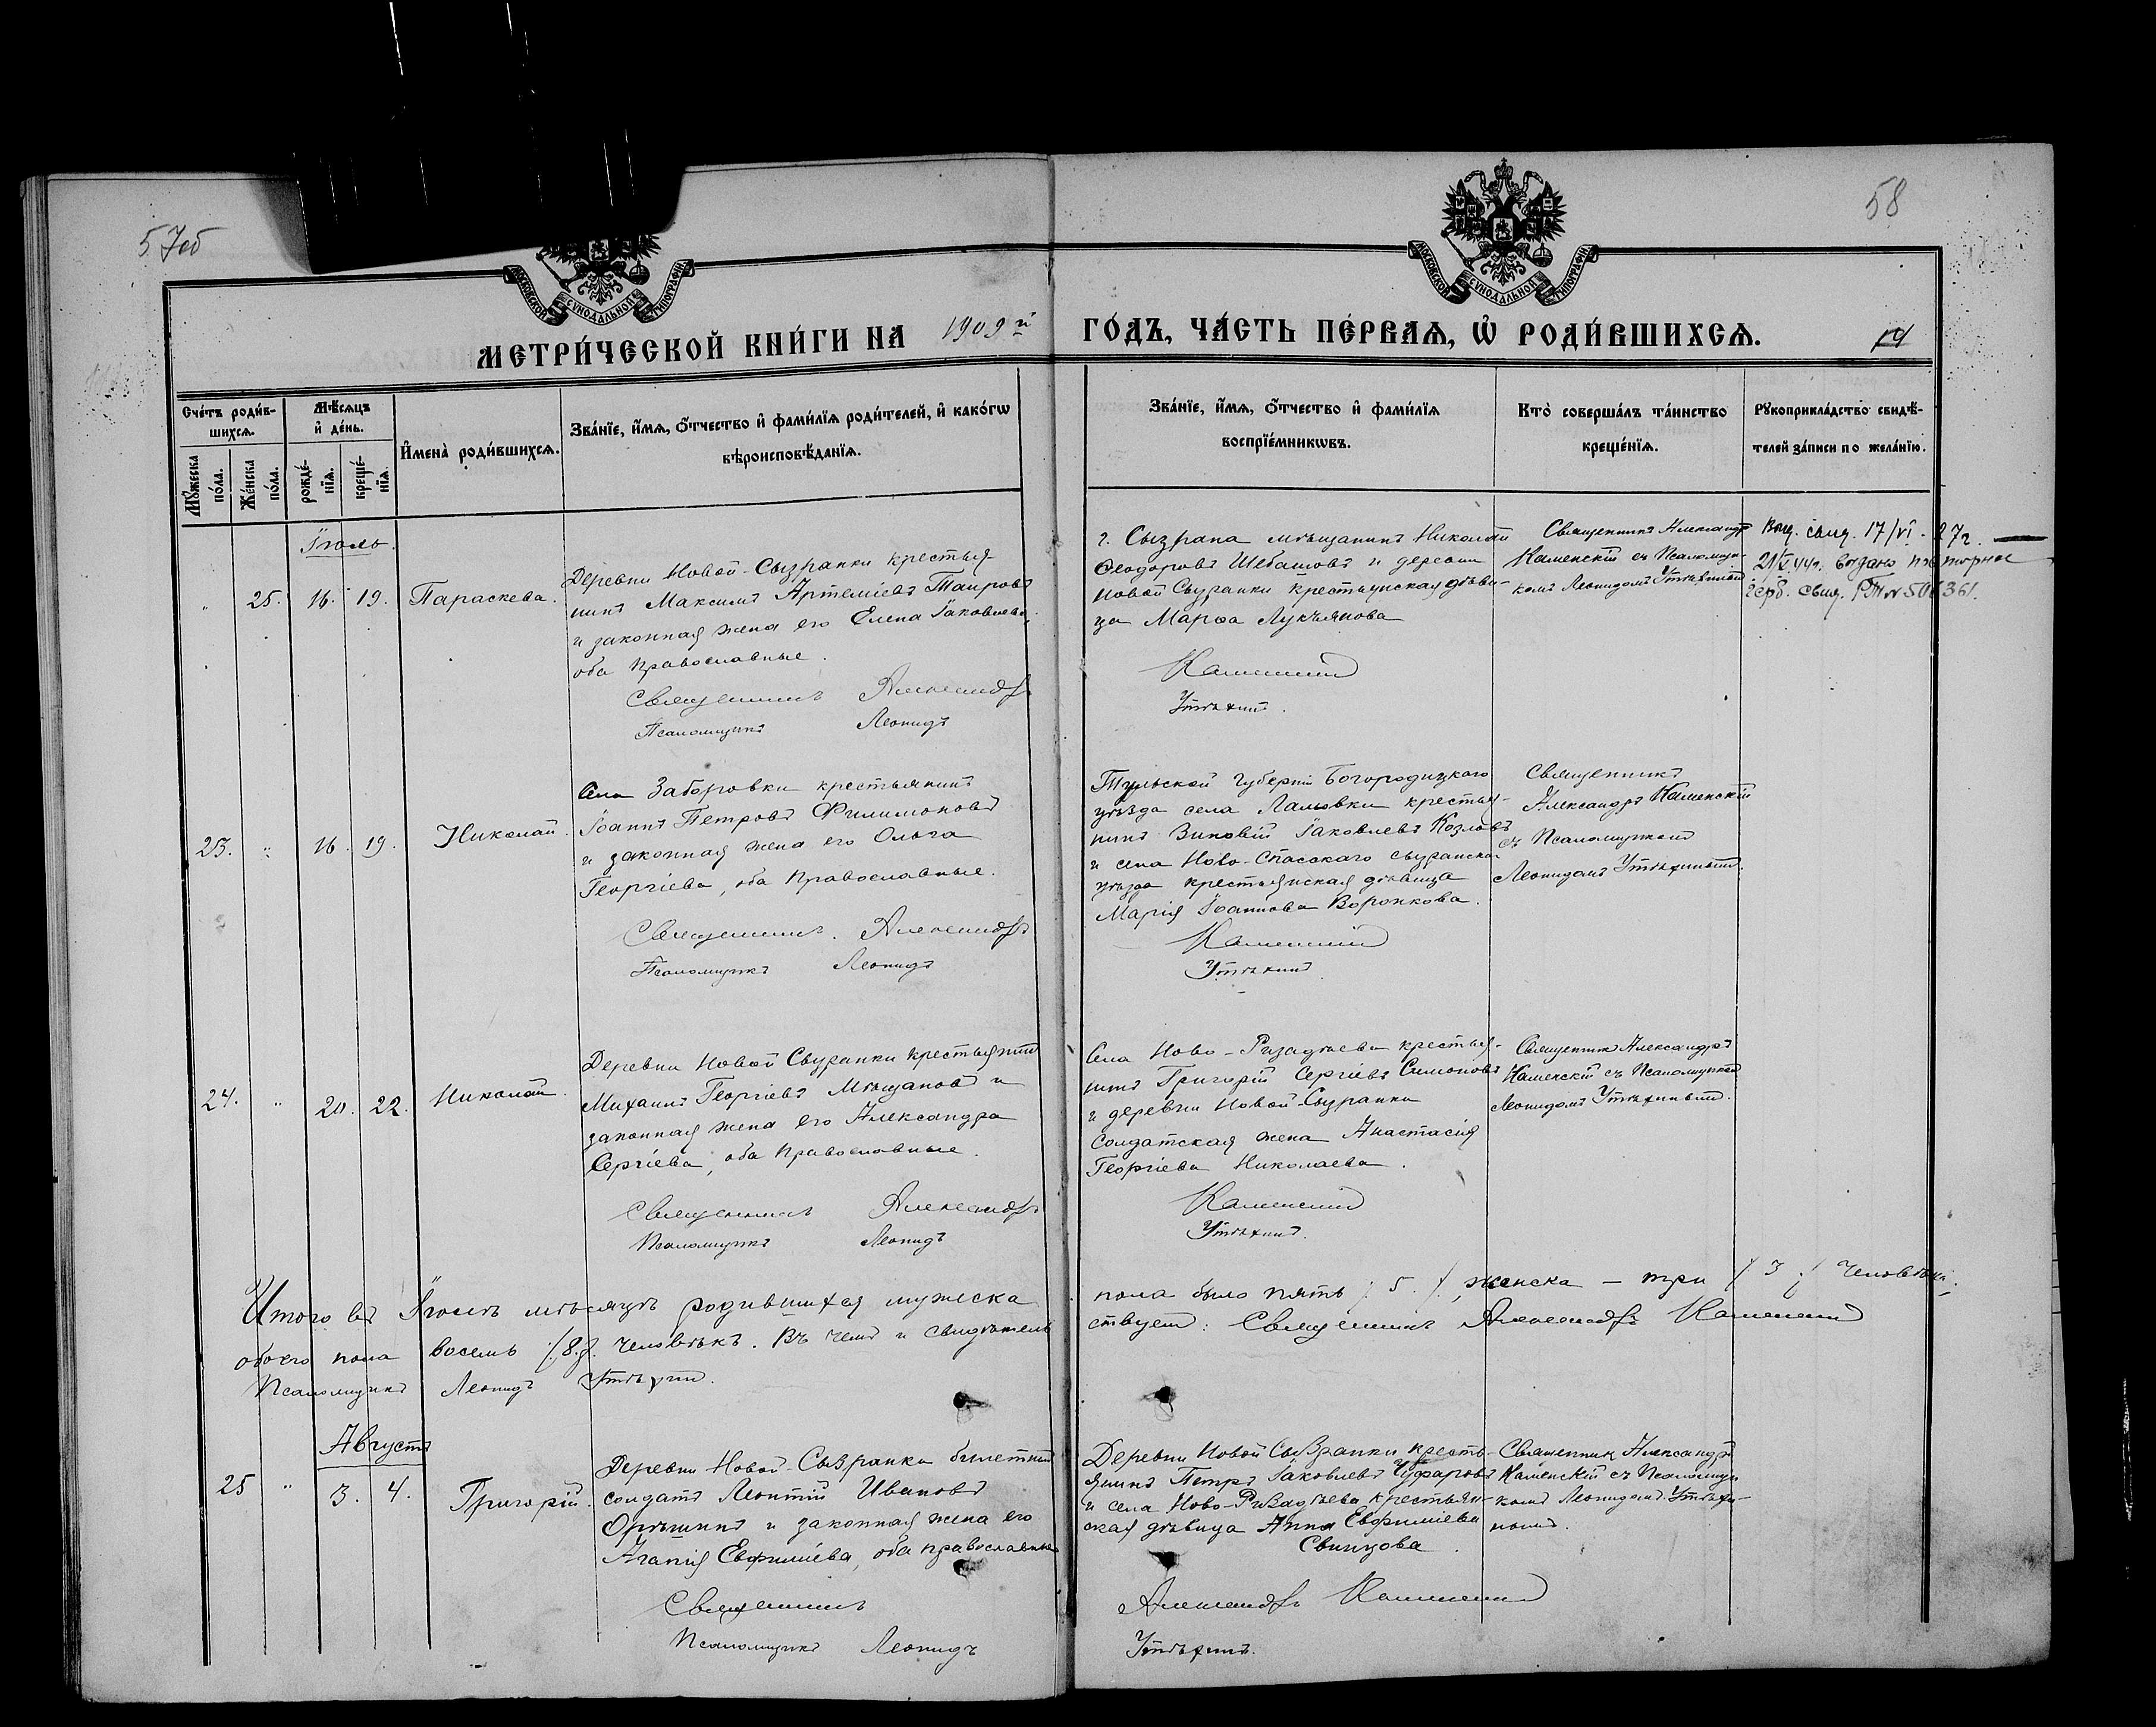 57об
58
МОСКОВСКОЙ СѴНОДАЛЬНОЙ ТИПОГРАФІИ
МОСКОВСКОЙ СѴНОДАЛЬНОЙ ТИПОГРАФІИ
МЕТРИ́ЧЕСКОЙ КНИ́ГИ НА 1909й ГО́ДЪ, ЧА́СТЬ ПЕ́РВАѦ, Ѡ҆ РОДИ́ВШИХСѦ.
14
Сче́тъ роди́в-
шихсѧ.
Мꙋ́жеска по́ла.
Же́нска по́ла.
Мѣ́сѧцъ
и҆ де́нь.
рожде́-
нїѧ.
креще́-
нїѧ.
И҆мена̀ роди́вшихсѧ.
Зва́нїе, и҆́мѧ, ѻ҆́тчество и҆ фами́лїѧ роди́телей, и҆ како́гѡ
вѣроисповѣ́данїѧ.
Зва́нїе, и҆́мѧ, ѻ҆́тчество и҆ фами́лїѧ
воспрїе́мникѡвъ.
Кто̀ соверша́лъ та́инство
креще́нїѧ.
Рꙋкоприкла́дство свидѣ́-
телей за́писи по жела́нїю.
Іюль.
" 25. 16. 19. Параскева.
Деревни Новой-Сызранки крестья-
нинъ Максимъ Артеміевъ Таировъ
и законная жена его Елена Іаковлева,
оба православные.
Священникъ Александръ
Псаломщикъ Леонидъ
г. Сызрана мѣщанинъ Николай
Ѳеодоровъ Шебашовъ и деревни
Новой Сызранки крестьянская дѣви-
ца Марѳа Лукъянова
Каменскій
Утѣхинъ.
Священникъ Александръ
Каменскій съ Псаломщи-
комъ Леонидомъ Утѣхинымъ
Выд. свид. 17/VI - 27г.
21/V 44г. выдано повторное
герб. свид.
23. " 16. 19. Николай.
Села Заборовки крестьянинъ
Іоаннъ Петровъ Филимоновъ
и законная жена его Ольга
Георгіева, оба православные.
Священникъ Александръ
Псаломщикъ Леонидъ
Тульской губерніи Богородицкаго
уѣзда села Ламовки крестья-
нинъ Зиновій Іаковлевъ Козловъ
и села Ново-Спасскаго сызранска
уѣзда крестьянская дѣвица
Марія Іоаннова Воронкова.
Каменскій
Утѣхинъ.
Священникъ
Александръ Каменскій
съ Псаломщикомъ
Леонидомъ Утѣхинымъ.
24. " 20. 22. Николай.
Деревни Новой Сызранки крестьянинъ
Михаилъ Георгіевъ Мѣщановъ и
законная жена его Александра
Сергіева, оба православные.
Священникъ Александръ
Псаломщикъ Леонидъ
Села Ново-Ризадѣева крестья-
нинъ Григорій Сергіевъ Симоновъ
и деревни Новой-Сызранки
солдатская жена Анастасія
Георгіева Николаева.
Каменскій
Утѣхинъ.
Священникъ Александръ
Каменскій съ Псаломщикомъ
Леонидомъ Утѣхинымъ.
Итого въ Іюлѣ мѣсяцѣ родившихся мужеска пола было пять /5./, женска - три /3/ человѣка;
обоего пола восемь /8/. человѣкъ. Въ чемъ и свидѣтель ствуемъ: Священникъ Александръ Каменскій
Псаломщикъ Леонидъ Утѣхинъ.
Августъ
25 " 3. 4. Григорій.
Деревни Новой-Сызранки билетный
солдатъ Леонтій Ивановъ
Орѣшинъ и законная жена его
Агапія Евфиміева, оба православные
Священникъ
Псаломщикъ Леонидъ
Деревни Новой Сызранки кресть-
янинъ Петръ Іаковлевъ Чуфаровъ
и села Ново-Ризадѣева крестьян-
ская дѣвица Анна Евфиміева
Свинцова.
Александръ Каменскій
Утѣхинъ.
Священникъ Александръ
Каменскій съ Псаломщи
комъ Леонидомъ Утѣхи-
нымъ.